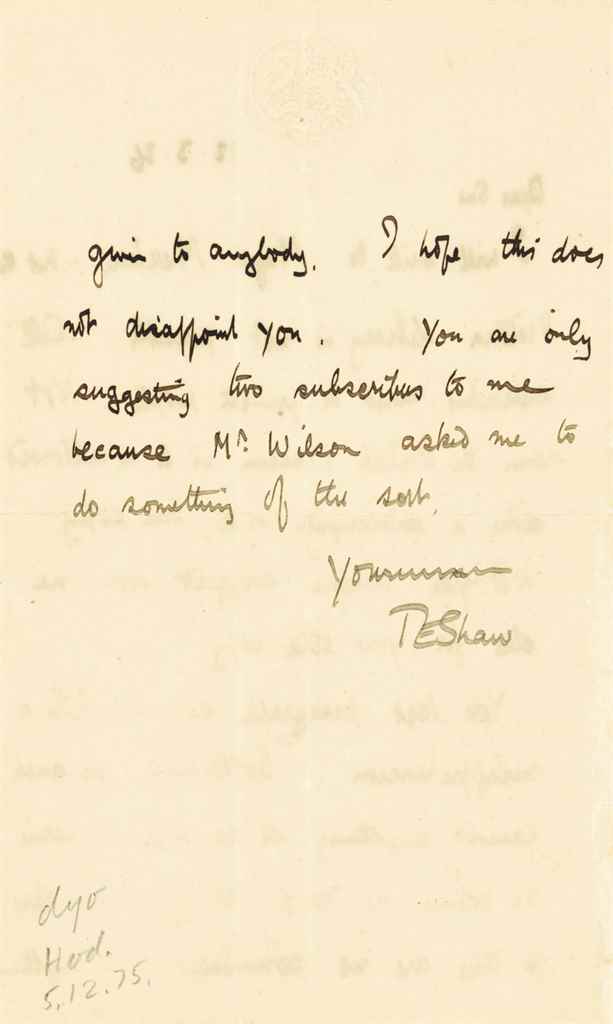 given to anybody. I hope this does
not disappoint you. You are only
suggesting two subscribers to me
because Mr. Wilson asked me to
do something of the sort.
Yours
TEShaw
Hod.
5.12.75.